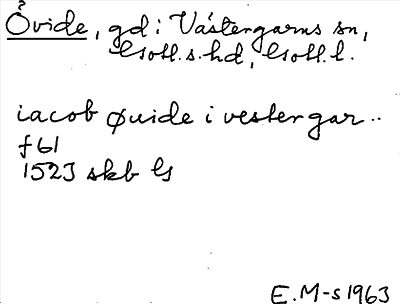 Övide, gd i Västergarns sn,
Gotl. s. hd, Gotl. l.
iacob øuide i vestergar..
f 61
1523 skb G
E.M-s 1963